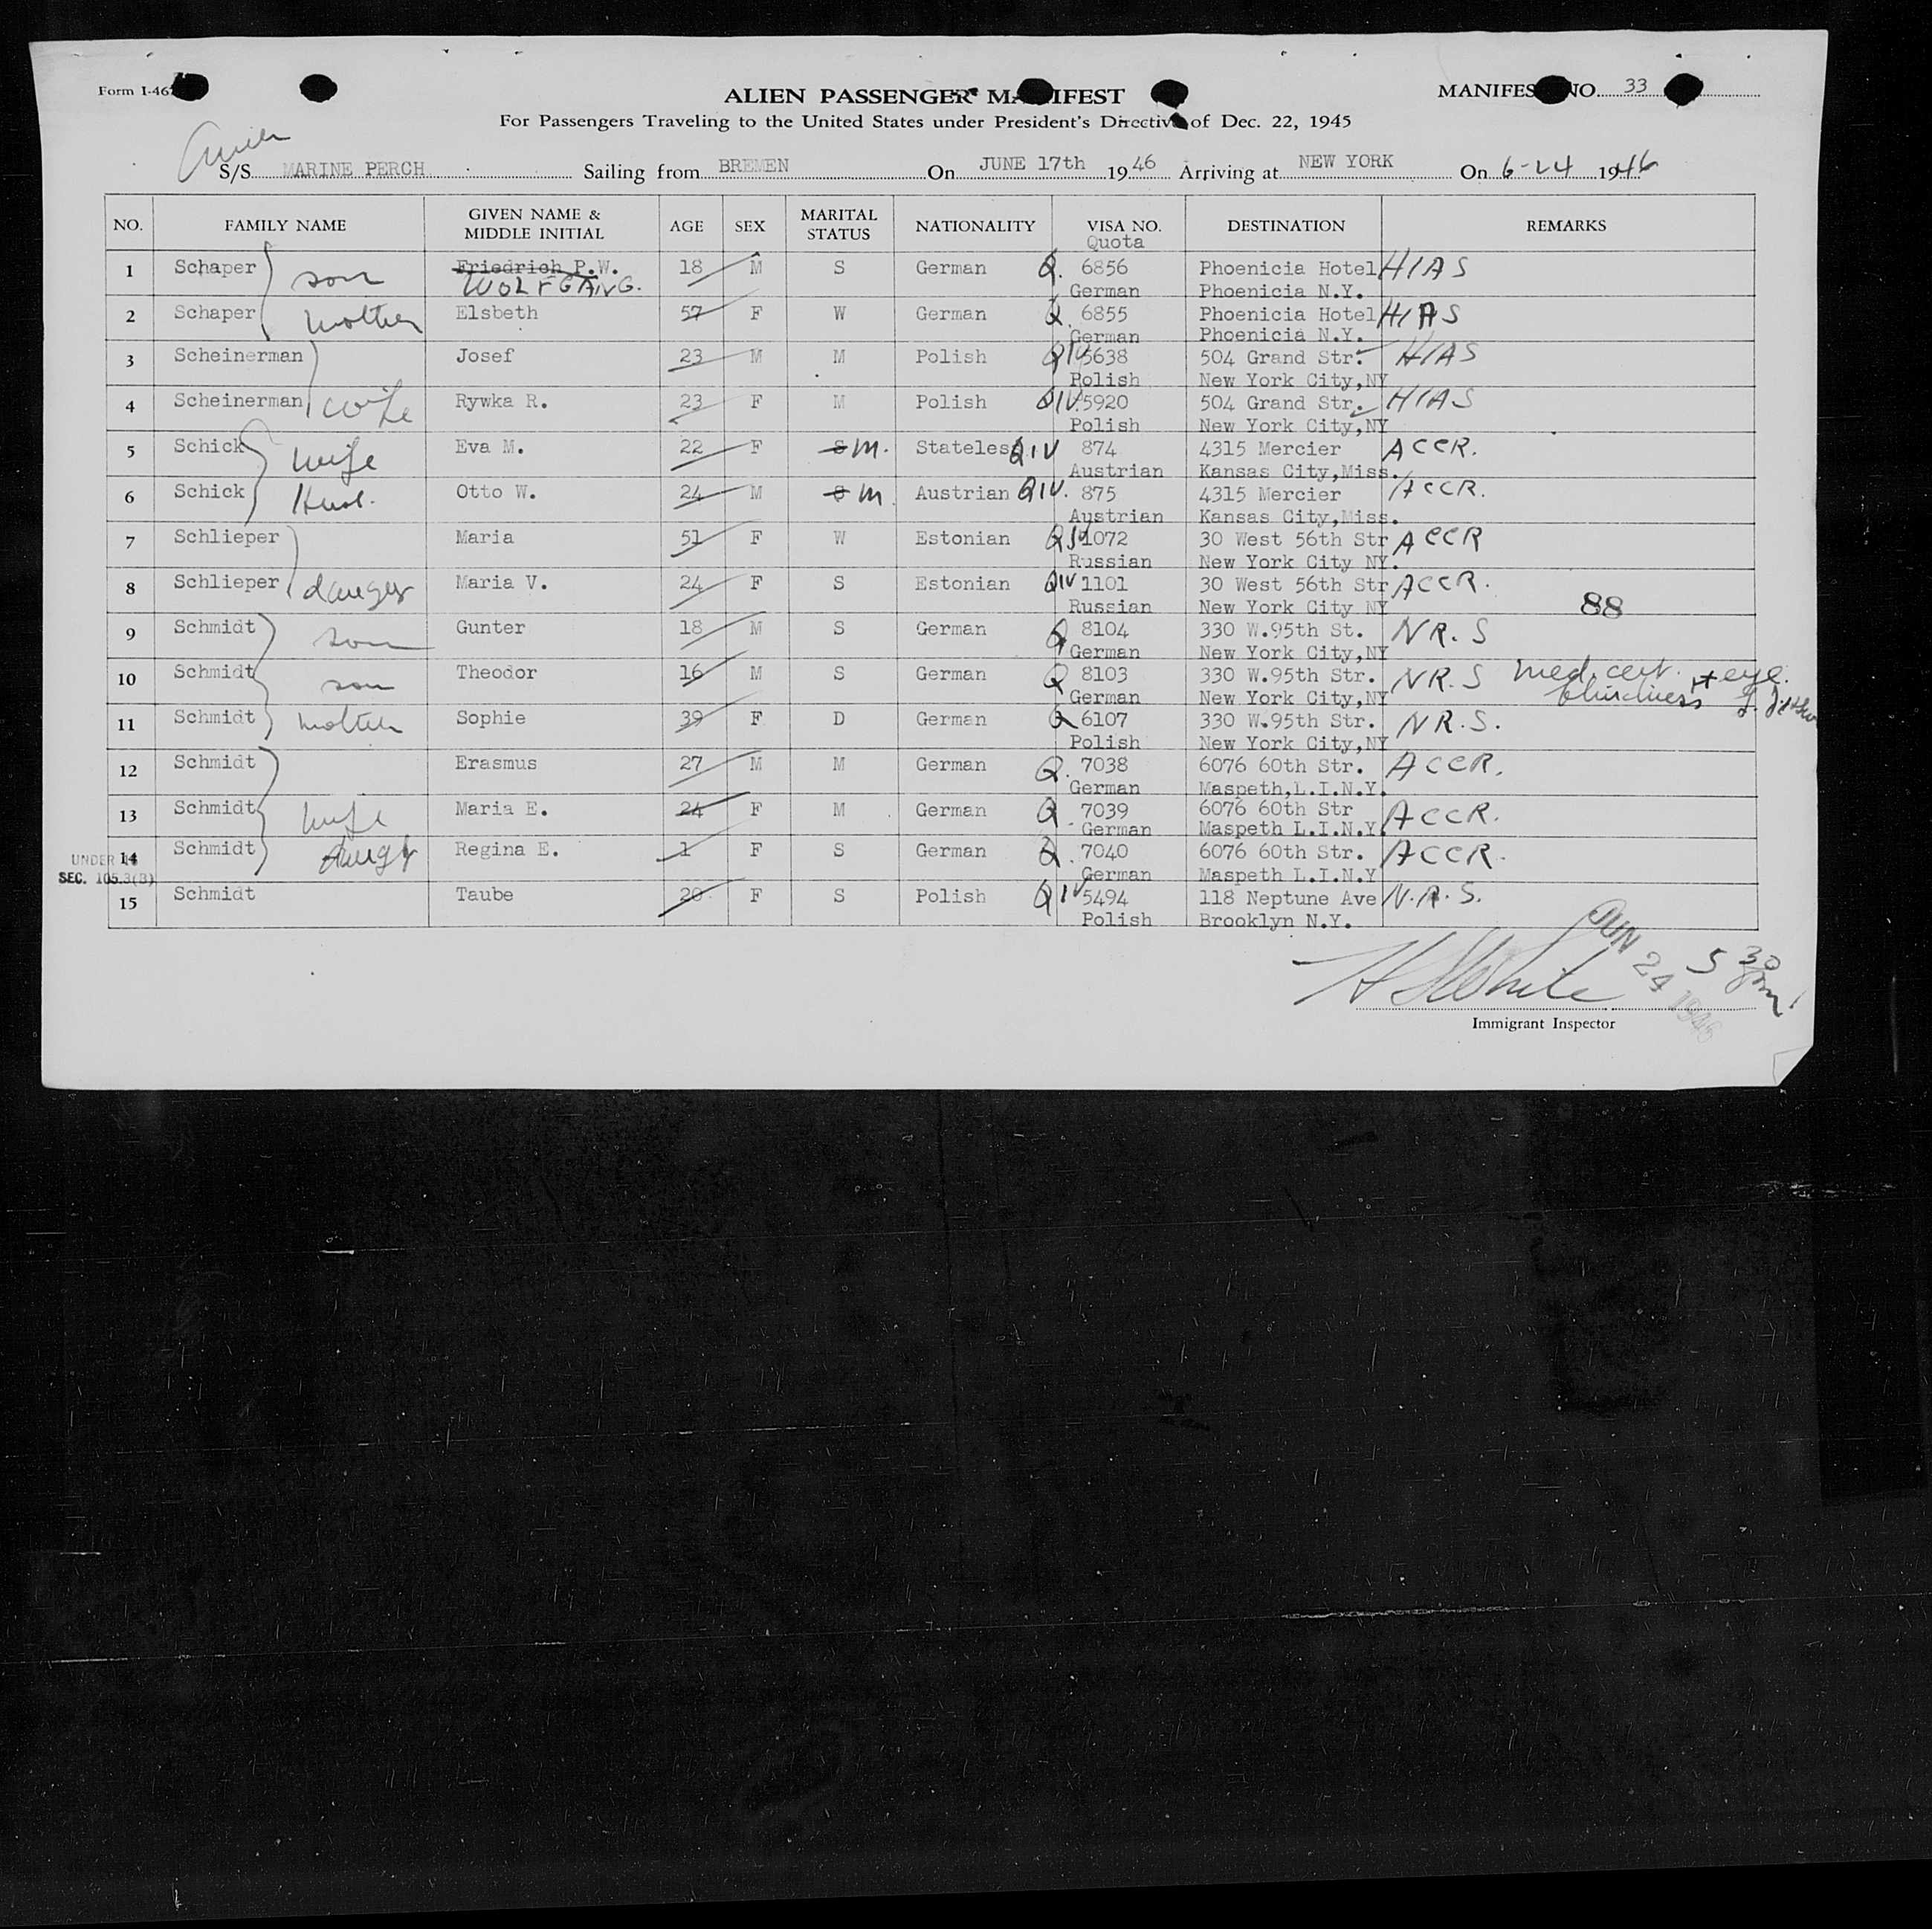 Form I-46
ALIEN PASSENGER MANIFEST
MANIFEST NO. 33
For Passengers Traveling to the United States under President's Directive of Dec. 22, 1945
S/S MARINE PERCH Sailing from BREMEN On JUNE 17th 1946 Arriving at NEW YORK On 6-24 1946
NO. FAMILY NAME GIVEN NAME & MIDDLE INITIAL AGE SEX MARITAL STATUS NATIONALITY VISA NO. Quota DESTINATION REMARKS
1 Schaper son Friedrich P.W. 18 M S German Q. 6856 Phoenicia Hotel HIAS
WOLFGANG. German Phoenicia N.Y.
2 Schaper mother Elsbeth 57 F W German Q. 6855 Phoenicia Hotel HIAS
German Phoenicia N.Y.
3 Scheinerman Josef 23 M M Polish QIV 5638 504 Grand Str. HIAS
Polish New York City,NY
4 Scheinerman wife Rywka R. 23 F M Polish QIV 5920 504 Grand Str. HIAS
Polish New York City,NY
5 Schick wife Eva M. 22 F S M. Stateless QIV 874 4315 Mercier ACCR.
Austrian Kansas City,Miss.
6 Schick Husb. Otto W. 24 M S M Austrian QIV. 875 4315 Mercier ACCR.
Austrian Kansas City,Miss.
7 Schlieper Maria 51 F W Estonian QIV 1072 30 West 56th Str ACCR
Russian New York City NY.
8 Schlieper Maria V. 24 F S Estonian QIV 1101 30 West 56th Str ACCR.
Russian New York City NY 88
9 Schmidt son Gunter 18 M S German Q 8104 330 W.95th St. NR.S
German New York City,NY
10 Schmidt son Theodor 16 M S German Q 8103 330 W.95th Str. NR.S med. cert.
German New York City,NY blindness rt eye.
11 Schmidt mother Sophie 39 F D German Q 6107 330 W.95th Str. NR.S.
Polish New York City,NY
12 Schmidt Erasmus 27 M M German Q. 7038 6076 60th Str. ACCR.
German Maspeth,L.I.N.Y.
13 Schmidt wife Maria E. 24 F M German Q. 7039 6076 60th Str ACCR.
German Maspeth L.I.N.Y.
UNDER 16 14 Schmidt Regina E. 1 F S German Q. 7040 6076 60th Str. ACCR.
SEC. 105.3(B) German Maspeth L.I.N.Y
15 Schmidt Taube 20 F S Polish QIV 5494 118 Neptune Ave N.R.S.
Polish Brooklyn N.Y.
JUN 24 1946 5 30 pm
H S White
Immigrant Inspector